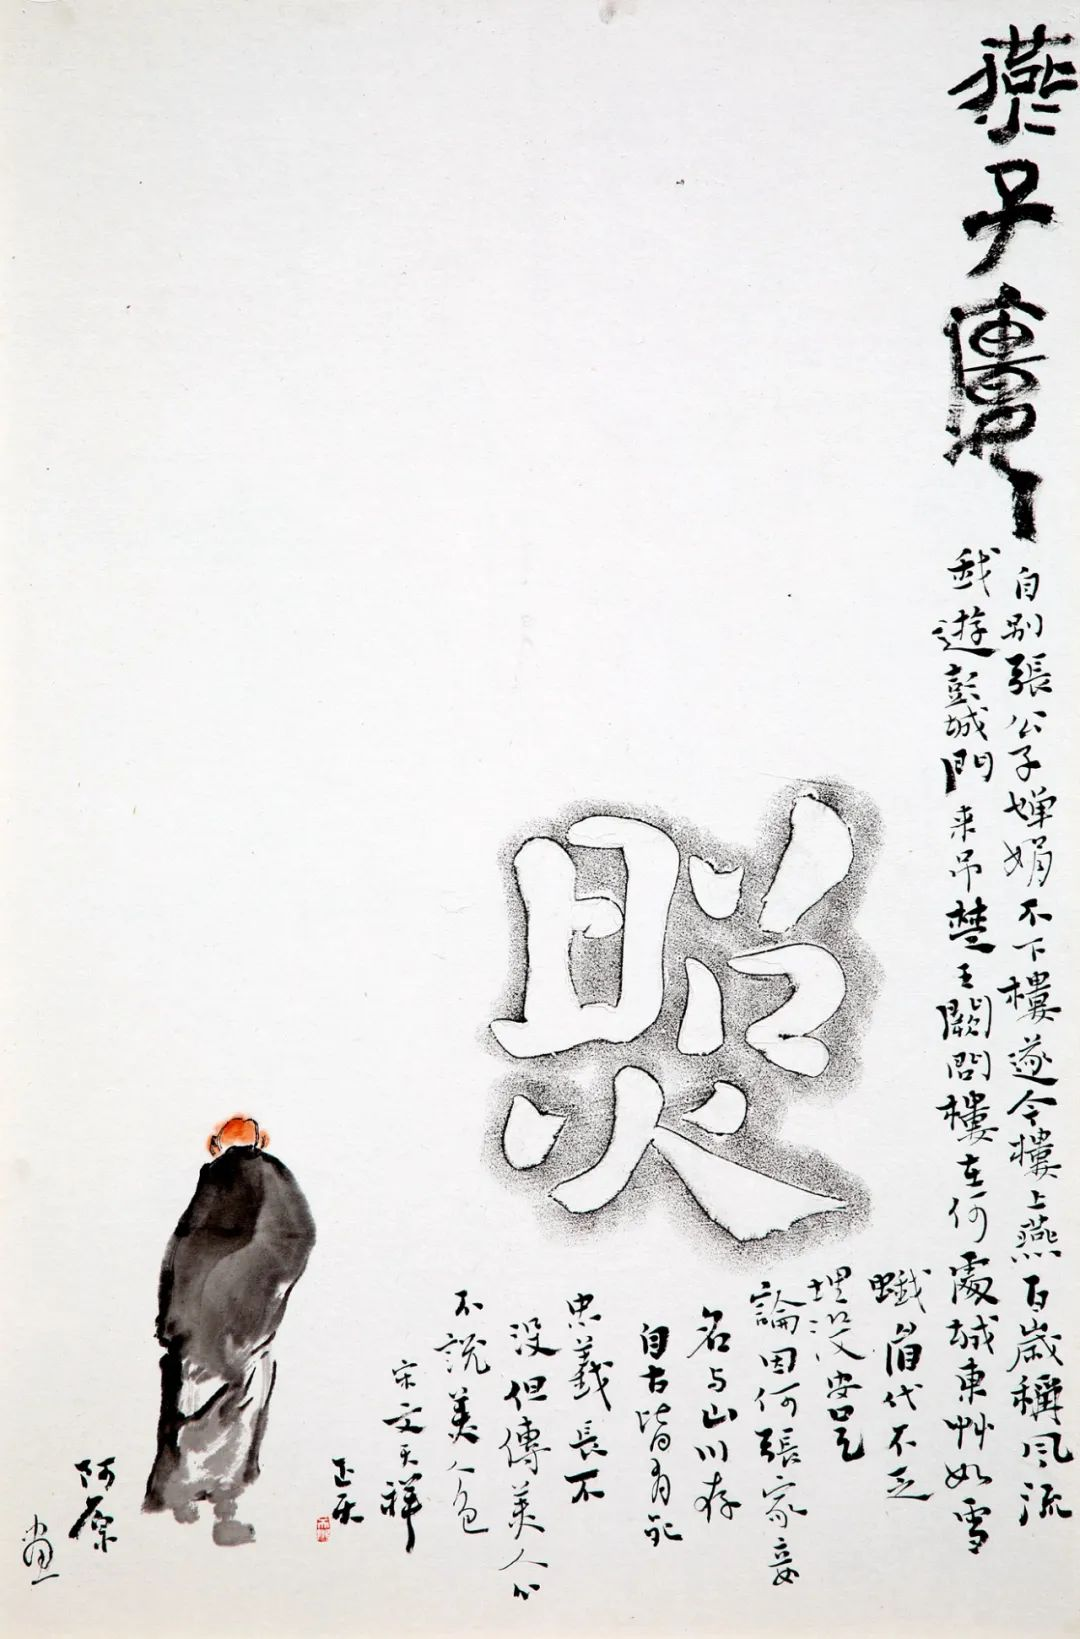 燕子樓
自别張公子嬋娟不下樓遂令樓上燕百歲稱風流
我遊彭城門来吊楚王闕問樓在何處城東艸如雪
蛾眉代不乏
埋没安足
論因何張家妾
名与山川存
自古皆有死
忠義長不
没但傳美人心
不說美人色
宋文天祥
正天
照
阿原
畫